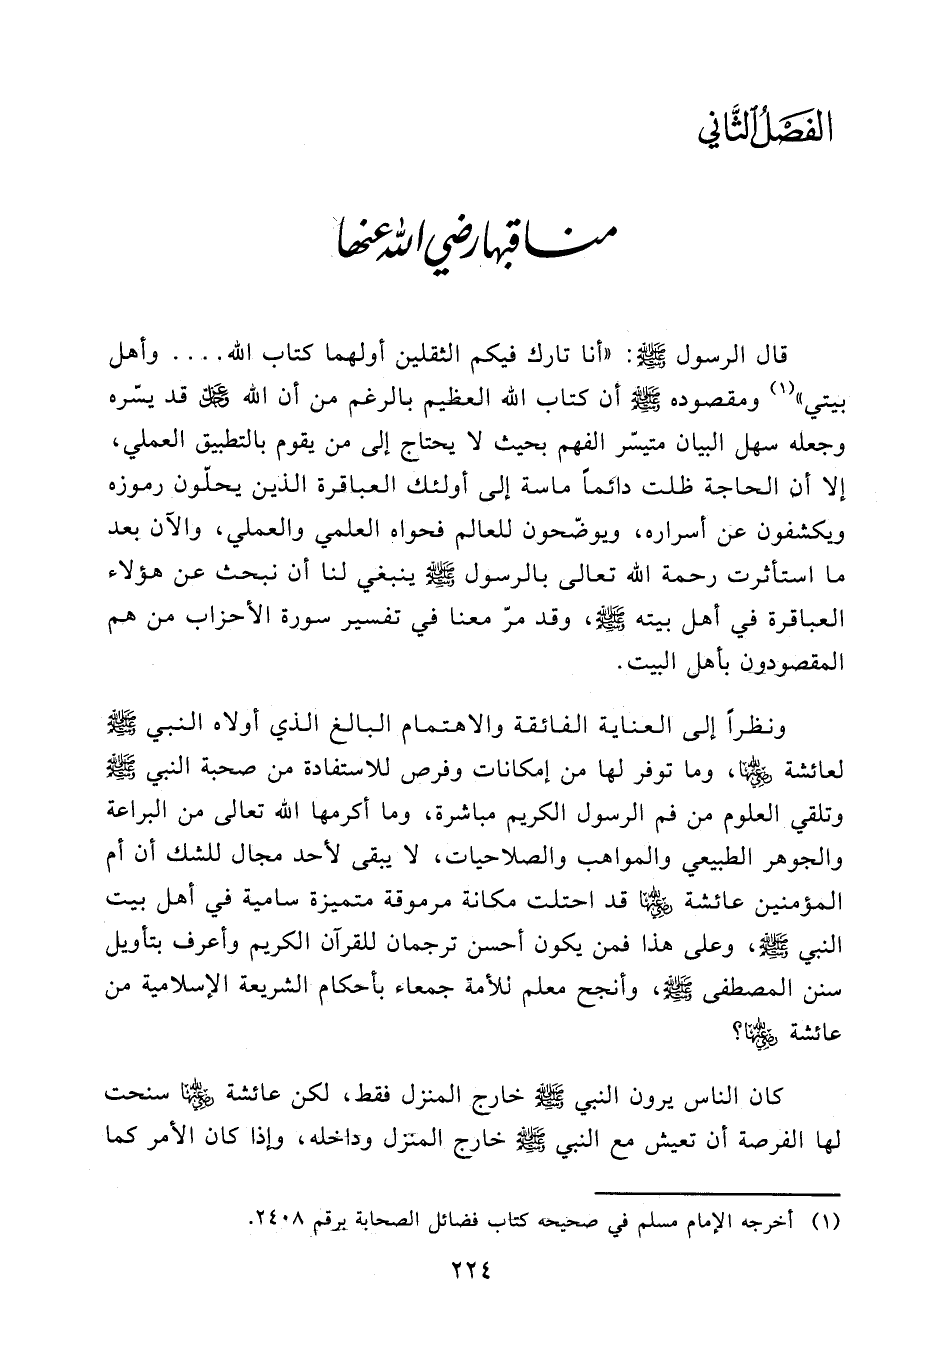 الفَصْلُ الثَّاني
مناقبها رضي الله عنها
قال الرسول ﷺ: «أنا تارك فيكم الثقلين أولهما كتاب الله.... وأهل
بيتي»(١) ومقصوده ﷺ أن كتاب الله العظيم بالرغم من أن الله عز وجل قد يسّره
وجعله سهل البيان متيسّر الفهم بحيث لا يحتاج إلى من يقوم بالتطبيق العملي،
إلا أن الحاجة ظلت دائماً ماسة إلى أولئك العباقرة الذين يحلّون رموزه
ويكشفون عن أسراره، ويوضّحون للعالم فحواه العلمي والعملي، والآن بعد
ما استأثرت رحمة الله تعالى بالرسول ﷺ ينبغي لنا أن نبحث عن هؤلاء
العباقرة في أهل بيته ﷺ، وقد مرّ معنا في تفسير سورة الأحزاب من هم
المقصودون بأهل البيت.
ونظراً إلى العناية الفائقة والاهتمام البالغ الذي أولاه النبي ﷺ
لعائشة رضي الله عنها، وما توفر لها من إمكانات وفرص للاستفادة من صحبة النبي ﷺ
وتلقي العلوم من فم الرسول الكريم مباشرة، وما أكرمها الله تعالى من البراعة
والجوهر الطبيعي والمواهب والصلاحيات، لا يبقى لأحد مجال للشك أن أم
المؤمنين عائشة رضي الله عنها قد احتلت مكانة مرموقة متميزة سامية في أهل بيت
النبي ﷺ، وعلى هذا فمن يكون أحسن ترجمان للقرآن الكريم وأعرف بتأويل
سنن المصطفى ﷺ، وأنجح معلم للأمة جمعاء بأحكام الشريعة الإسلامية من
عائشة رضي الله عنها؟
كان الناس يرون النبي ﷺ خارج المنزل فقط، لكن عائشة رضي الله عنها سنحت
لها الفرصة أن تعيش مع النبي ﷺ خارج المنزل وداخله، وإذا كان الأمر كما
(١) أخرجه الإمام مسلم في صحيحه كتاب فضائل الصحابة برقم ٢٤٠٨.
٢٢٤